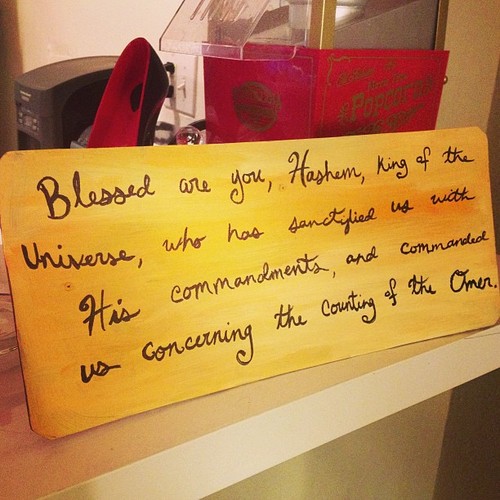 Blessed are you, Hashem, King of the
Universe, who has sanctified us with
His commandments, and commanded
us concerning the counting of the Omer.
Popcorn